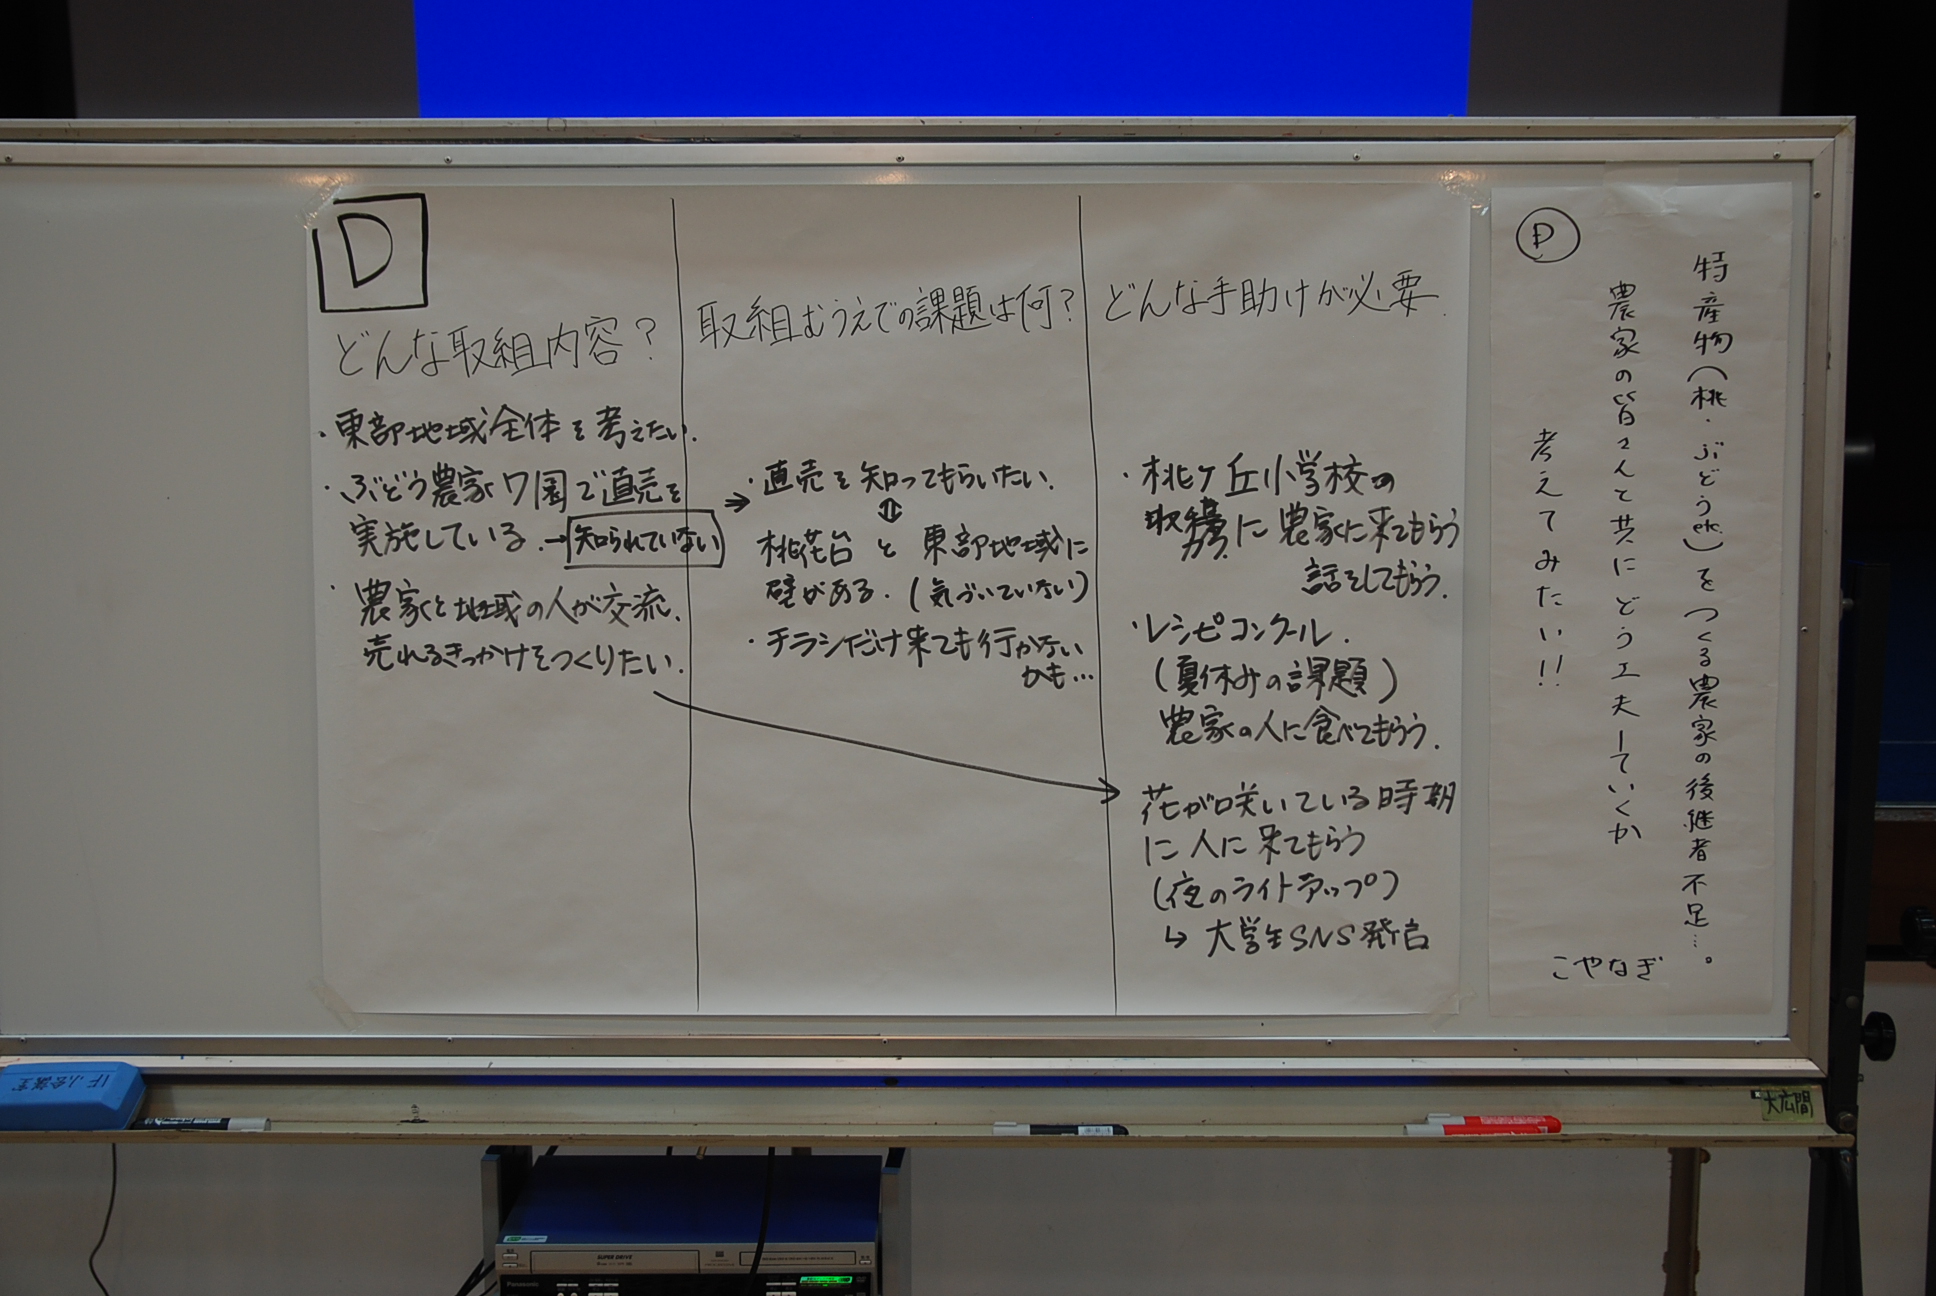 D
どんな取組内容?
・東部地域全体を考えたい.
・ぶどう農家7園で直売を
実施している.→知られていない
・農家と地域の人が交流.
売れるきっかけをつくりたい.
取組むうえでの課題は何?
・直売を知ってもらいたい.
⇕
桃花台と東部地域に
壁がある.(気づいていない)
・チラシだけ来ても行かない
かも…
どんな手助けが必要
・桃ヶ丘小学校の
に農家に来てもらう
話をしてもらう.
・レシピコンクール.
(夏休みの課題)
農家の人に食べてもらう.
花が咲いている時期
に人に来てもらう
(夜のライトアップ)
↳大学生SNS発信
D
特産物(桃・ぶどうetc)をつくる農家の後継者不足…。
農家の皆さんと共にどう工夫していくか
考えてみたい!!
こやなぎ
大広間
SUPER DRIVE
Panasonic